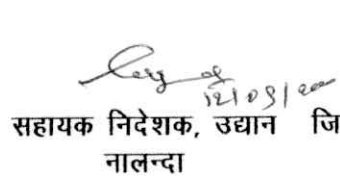 12/09/
सहायक निदेशक, उद्यान जि
नालन्दा